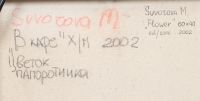 Suvorova M
В кафе" Х/М 2002
Цветок
папоротника
Suvorova M.
"Flower" 60x40
oil/canv 2002